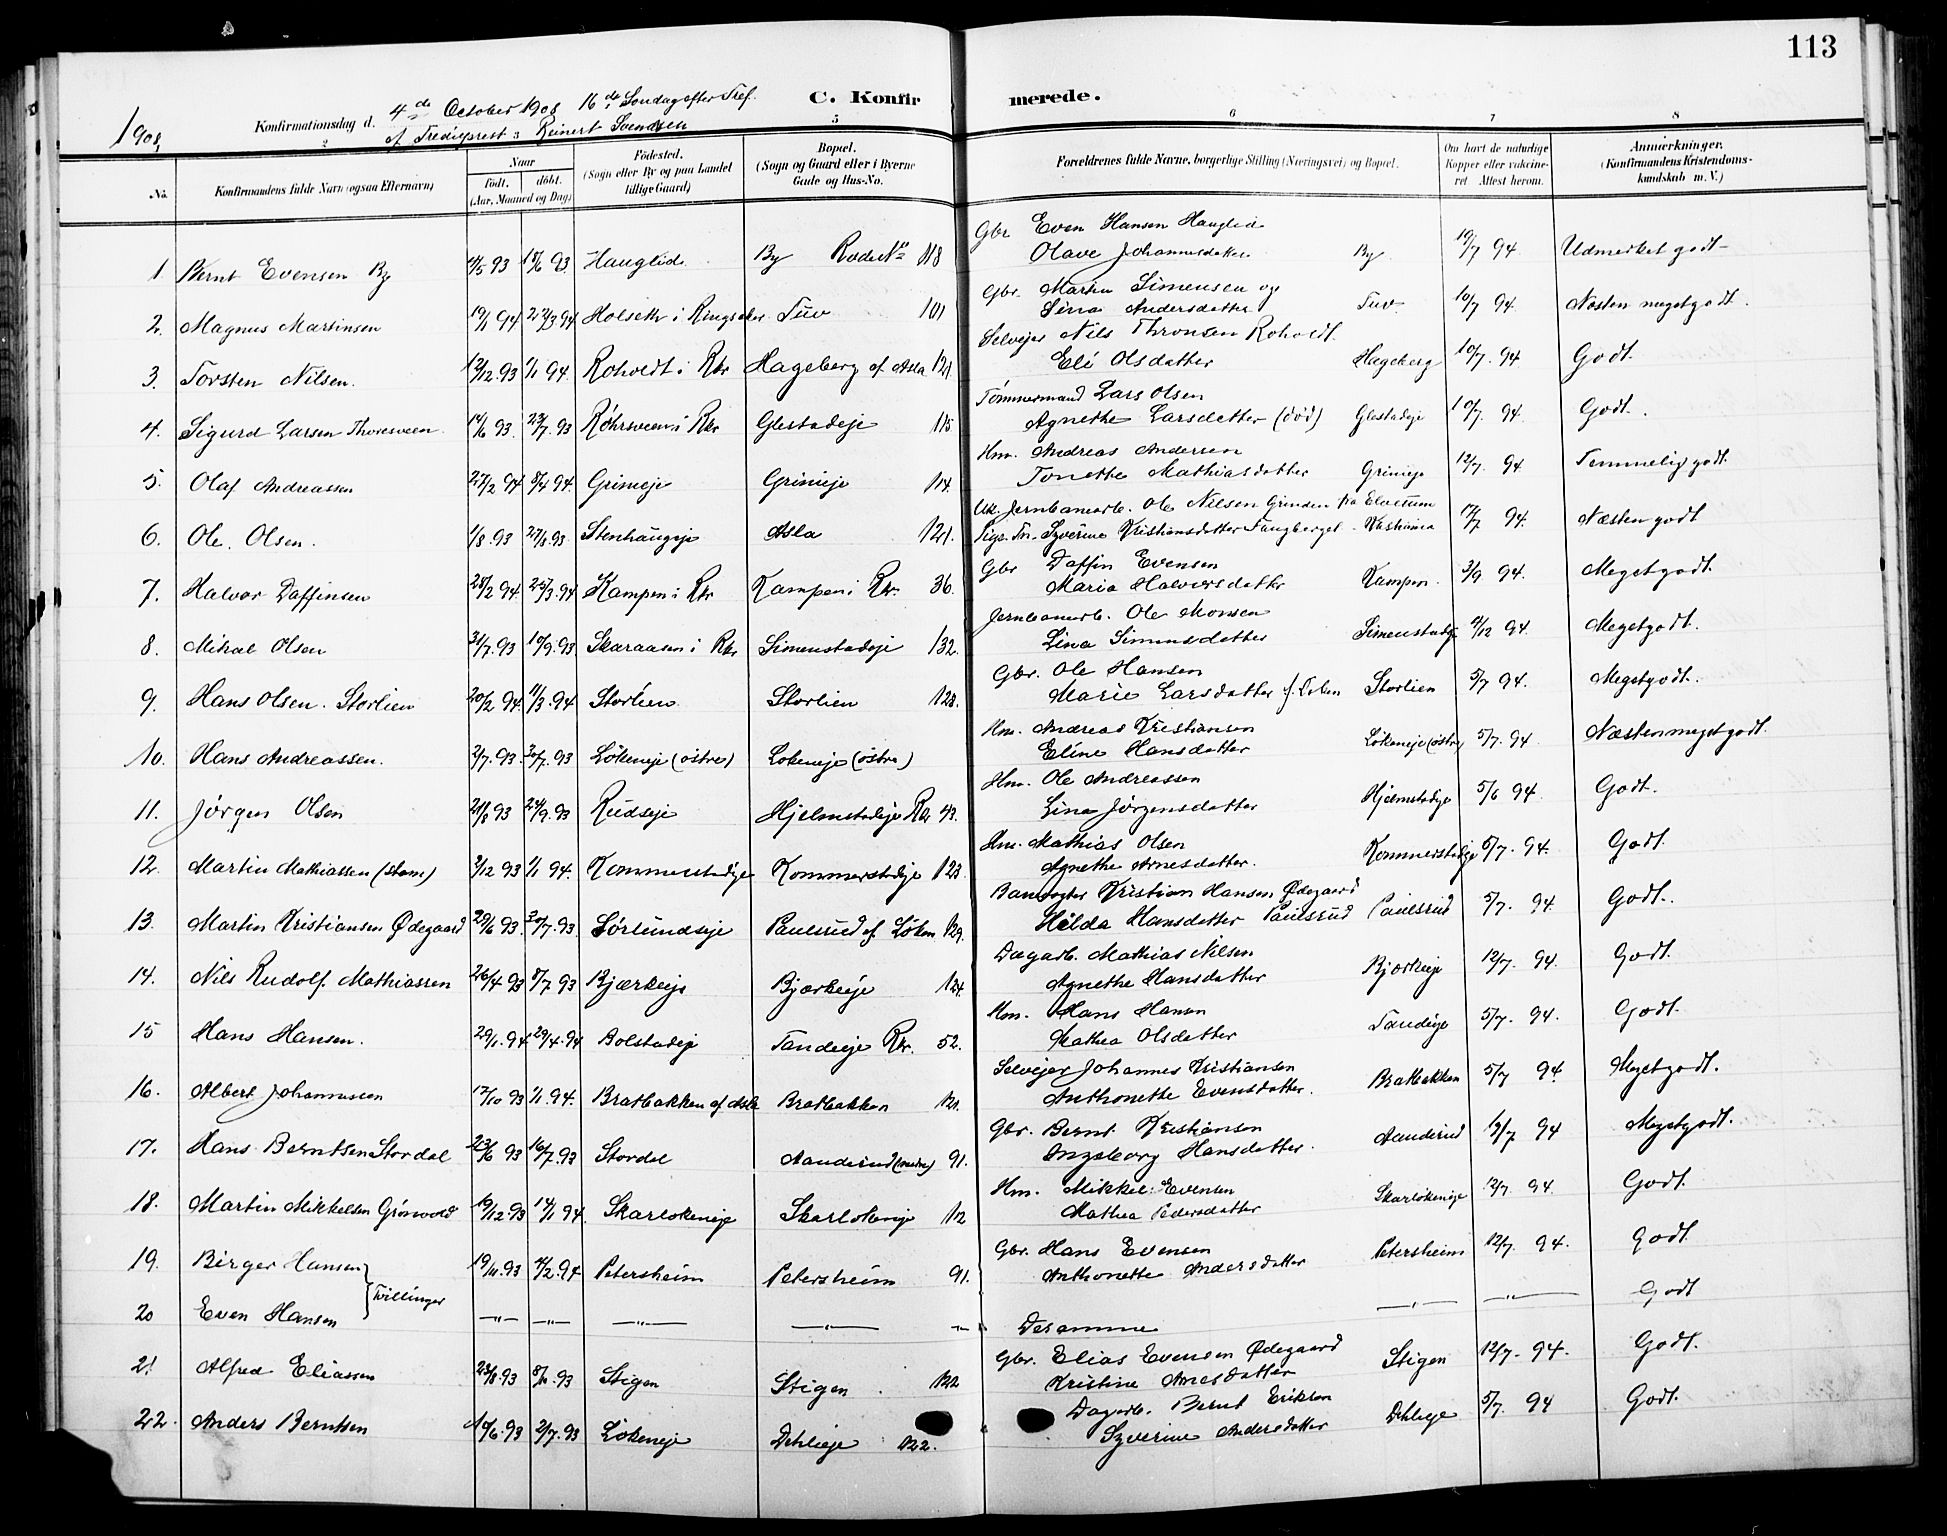 113
1908
4de October 1908 16de Søndag efter Tref.
C. Konfirmerede.
Konfirmationsdag d. af Trediepræst : Reinert Svendsen
2 5 6 7 8
No. Konfirmandens fulde Navn (ogsaa Efternavn) Naar født. døbt. (Aar, Maaned og Dag) Fødested. (Sogn eller By og paa Landet tillige Gaard) Bopæl. (Sogn og Gaard eller i Byerne Gade og Hus-No. Forældrenes fulde Navne, borgerlige Stilling (Næringsvei) og Bopæl. Om havt de naturlige Kopper eller vakcineret. Attest herom. Anmærkninger. (Konfirmandens Kristendomskundskab m. V.)
1 Bernt Evensen By 93 18/6 93 Hauglid By Rode No 118 Gbr Even Hansen Hauglid
Olave Johannesdatter By 94 Udmerket godt
2. Magnus Martinsen 94 94 Holseth i Ringsaker Tuv 101 Gbr. Martin Simensen og
Lina Andersdatter Tuv 10/7 94 Næsten megetgodt.
3. Torsten Nilsen. 93 1/1 94. Roholdt i Rkr Hageberg af Asla 121 Selveier Nils Thronsen Roholdt
Eli Olsdatter Hageberg 10/7. 94. Godt.
4. Sigurd Larsen Thoresveen 93. 93 Røhrsveen i Rkr Glestadeje 115 Tømmermand Lars Olsen
Agnethe Larsdatter (død) Glestadeje 10/7. 94. Godt.
5. Olaf Andreassen 27/2 94 8/4 94. Grimeje Grimeje 114. Hm. Andreas Andersen
Tonette Mathiasdatter Grimeje 12/7. 94 Temmelig godt.
6. Ole. Olsen. 1/8. 93 27/8. 93 Stenhaugeje Asla 121. Uk. Jernbanearb. Ole Nilsen Grinden fra Elverum
Pige Tn. Syverine Kristiansdatter Fangberget 94. Næsten godt
7. Halvor Daffinsen 28/2 94. 94 Kampen i Rkr Kampen i Rkr. 36. Gbr Daffin Evensen
Maria Halvorsdatter Kampen. 3/9 94. Megetgodt.
8. Mikal Olsen 93 10/9. 93 Skaraasen i Rkr Simenstadeje 132. Jernbanearb. Ole Monsen
Lina Simensdatter Simenstadeje 94. Megetgodt.
9. Hans Olsen. Storlien 20/2 94 11/3. 94 Storlien. Storlien 128. Gbr. Ole Hansen
Marie Larsdatter Storlien 5/7 94. Megetgodt.
10. Hans Andreassen. 2/7. 93. 93 Løkeneje (østre) Løkeneje (østre) Hm. Andreas Kristiansen
Eline Hansdatter Løkeneje (østre) 5/7. 94. Næsten megetgodt.
11. Jørgen Olsen 21/8 93 24/9. 93 Rudseje Hjelmstadeje Rkr 43. Hm. Ole Andreassen
Lina Jørgensdatter Hjelmstadeje 5/6 94. Godt.
12. Martin Mathiassen (Stom) 3/12 93 1/1 94. Kommerstadeje Kommerstadeje 123. Hm. Mathias Olsen
Agnethe Arnesdatter. Kommerstadeje 5/7. 94. Godt.
13. Martin Kristiansen Ødegaard 29/6 93. 30/7. 93. Sørlundseje Paulsrud af Løken 129. Banvogter Kristian Hansen Ødegaard
Hilda Hansdatter Paulsrud Paulsrud 5/7. 94. Godt.
14. Nils Rudolf. Mathiassen 26/4 93 93 Bjærkeeje Bjærkeeje 124. Dagarb. Mathias Nilsen
Agnethe Hansdatter Bjærkeeje 12/7. 94. Godt.
15 Hans Hansen. 29/1. 94. 29/4. 94 Bolstadeje Tandeeje Rkr. 52. Hm. Hans Hansen
Mathea Olsdatter Tandeeje 5/7. 94. Godt.
16. Albert Johannessen 17/10 93 1/1. 94. Bratbakken af Asla Bratbakken 121. Selvejer Johannes Kristiansen
Anthonette Evensdatter. Bratbakken 5/7 94 Megetgodt.
17. Hans Berntsen Stordal 23/6 93 16/7. 93 Stordal Aanderud (nedre) 91. Gbr. Bernt Kristiansen
Ingeborg Hansdatter. Aanderud 94 Megetgodt.
18. Martin Mikkelsen Grønvold 19/12 93 14/1 94. Skarløkeneje Skarløkeneje 112 Hm. Mikkel: Evensen
Mathea Pedersdatter Skarløkeneje 12/7. 94. Godt.
19. Birger Hansen 19/11. 93 94 Petersheim Petersheim 91. Gbr. Hans Evensen
Anthonette Andersdatter Petersheim 12/7. 94. Godt
Tvillinger
20 Even Hansen —"— —"— —"— —"— —"— Desamme —"— —"— Godt
21 Alfred Eliassen 93 93 Stigen Stigen 122 Gbr. Elias Evensen Ødegaard
Kristine Arnesdatter Stigen 12/7. 94. Godt.
22. Anders Berntsen 93 2/7. 93 Løkeneje Dehlieje 122. Dagarb. Bernt Eriksen
Syverine Andersdatter Dehlieje 5/7. 94 Godt.